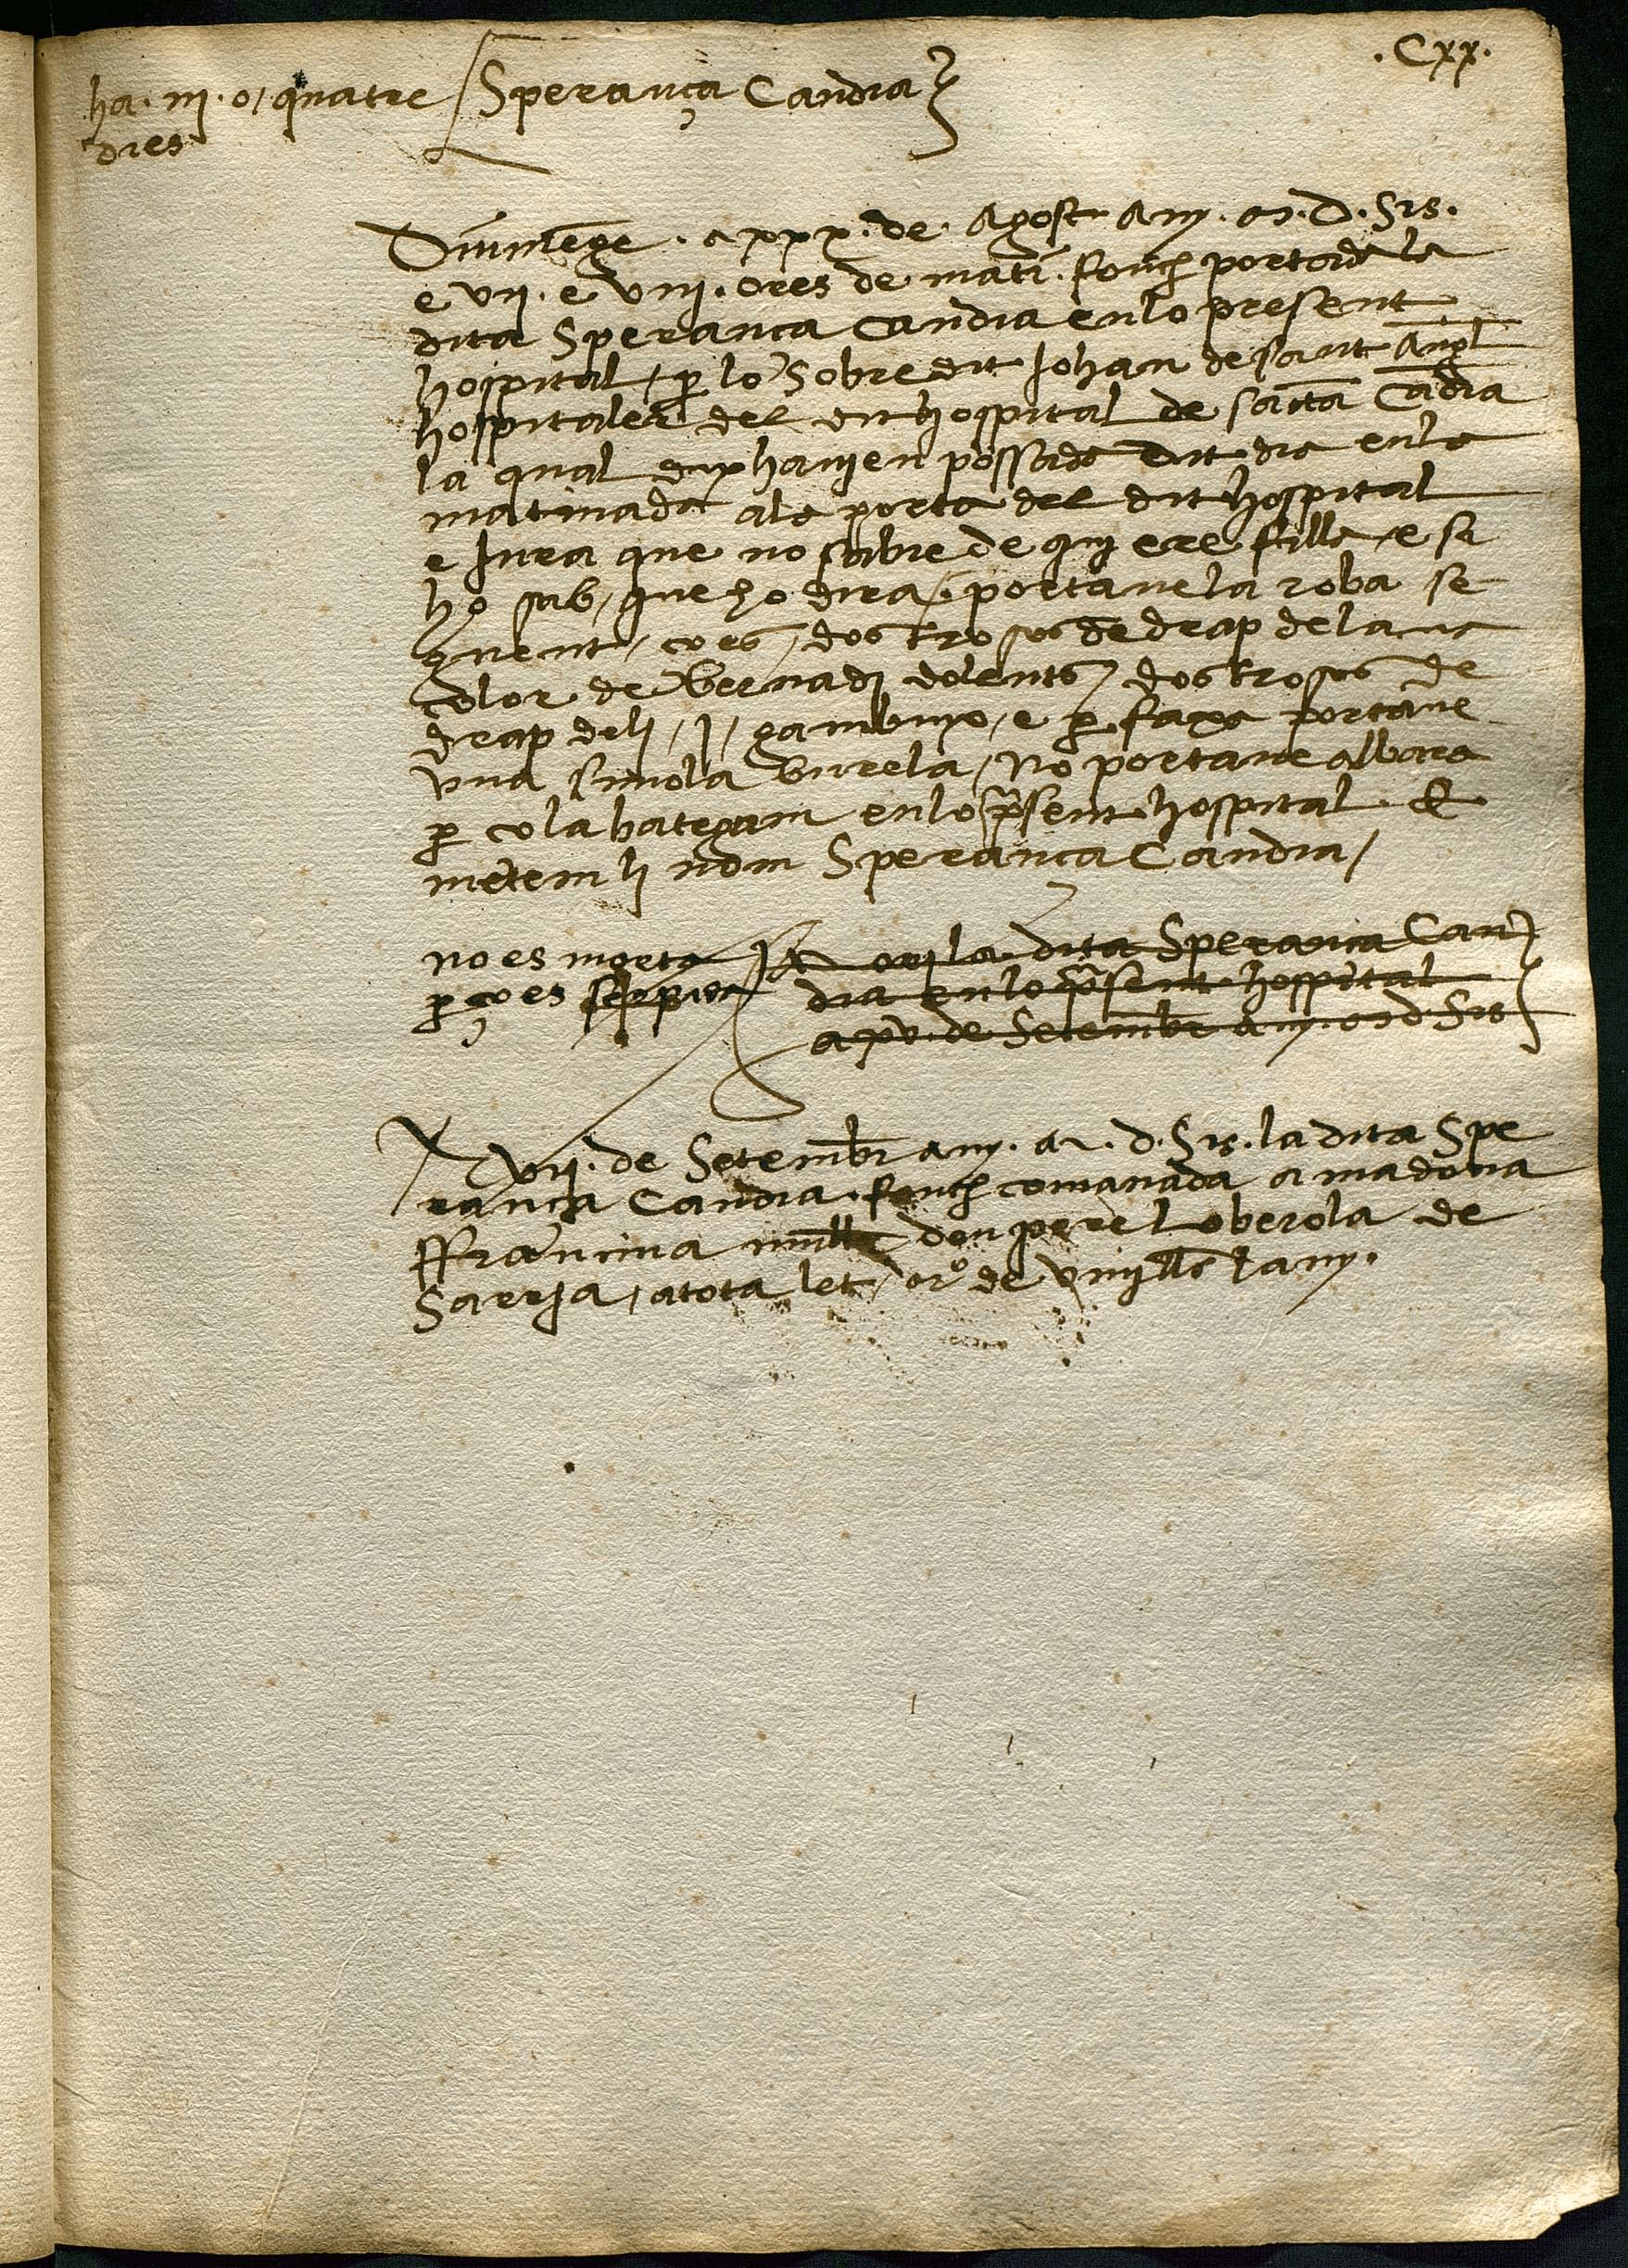 . Cxx.
ha . iii . o / quatre
dies
Sperança Candia
Diumēge . a xxx . de . Agost any . M . D . Sis .
e vii . e viii . ores de mati . fonch portada la
dita Speranca Candia en lo present
hospital / ꝑ lo sobredit Johan de sant Angl
hospitaler del dit hospital de sācta Cādia
la qual dix havien possada dit dia en la
matinada a la porta del dit hospital
e Jura que no sabie de qui ere filla e si
ho sab / que ho dira / portave la roba se
guent / ço es / dos trosos de drap de lana
color de Bernadi dolents / dos trosos de
drap de li / j / gambuyx / e ꝑ faxa portave
una simola burela / No portave albara
ꝑ co la bategam en lo p̄sent hospital &
metem li nom Speranca Candia /
no es morta
ꝑ ço es
la dita Speranca Can
dia en lo p̄sent hospital
a xv . de Setembr any . M d Sis
A xvii . de Setembr any . M . D . Sis . la dita Spe
ranca Candia . fonch comanada a madona
ffrancina mull den pere Loberola de
Sarria / a tota let / de viiii ll̄s lany .